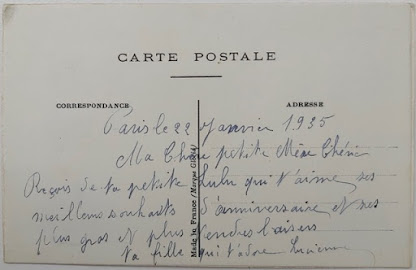 CARTE POSTALE
CORRESPONDANCE
ADRESSE
Paris le 22 Janvier 1935
Ma Chère petite Mère Chérie
Reçois de ta petite Lulu qui t'aime ses
meilleurs souhaits d'anniversaire et ses
plus gros et plus tendres baisers
ta fille qui t'adore Lucienne
Made in France